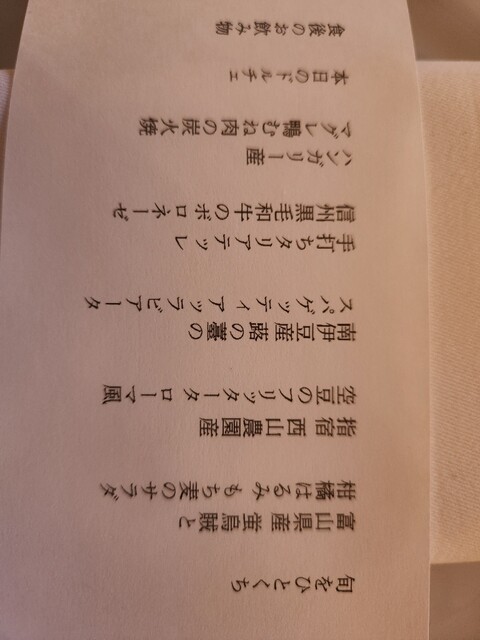 旬をひとくち
富山県産蛍烏賊と
柑橘はるみ もち麦のサラダ
指宿 西山農園産
空豆のフリッタータ ローマ風
南伊豆産 蕗の薹の
スパゲッティ アッラビアータ
手打ちタリアテッレ
信州黒毛和牛のボロネーゼ
ハンガリー産
マグレ鴨むね肉の炭火焼
本日のドルチェ
食後のお飲み物